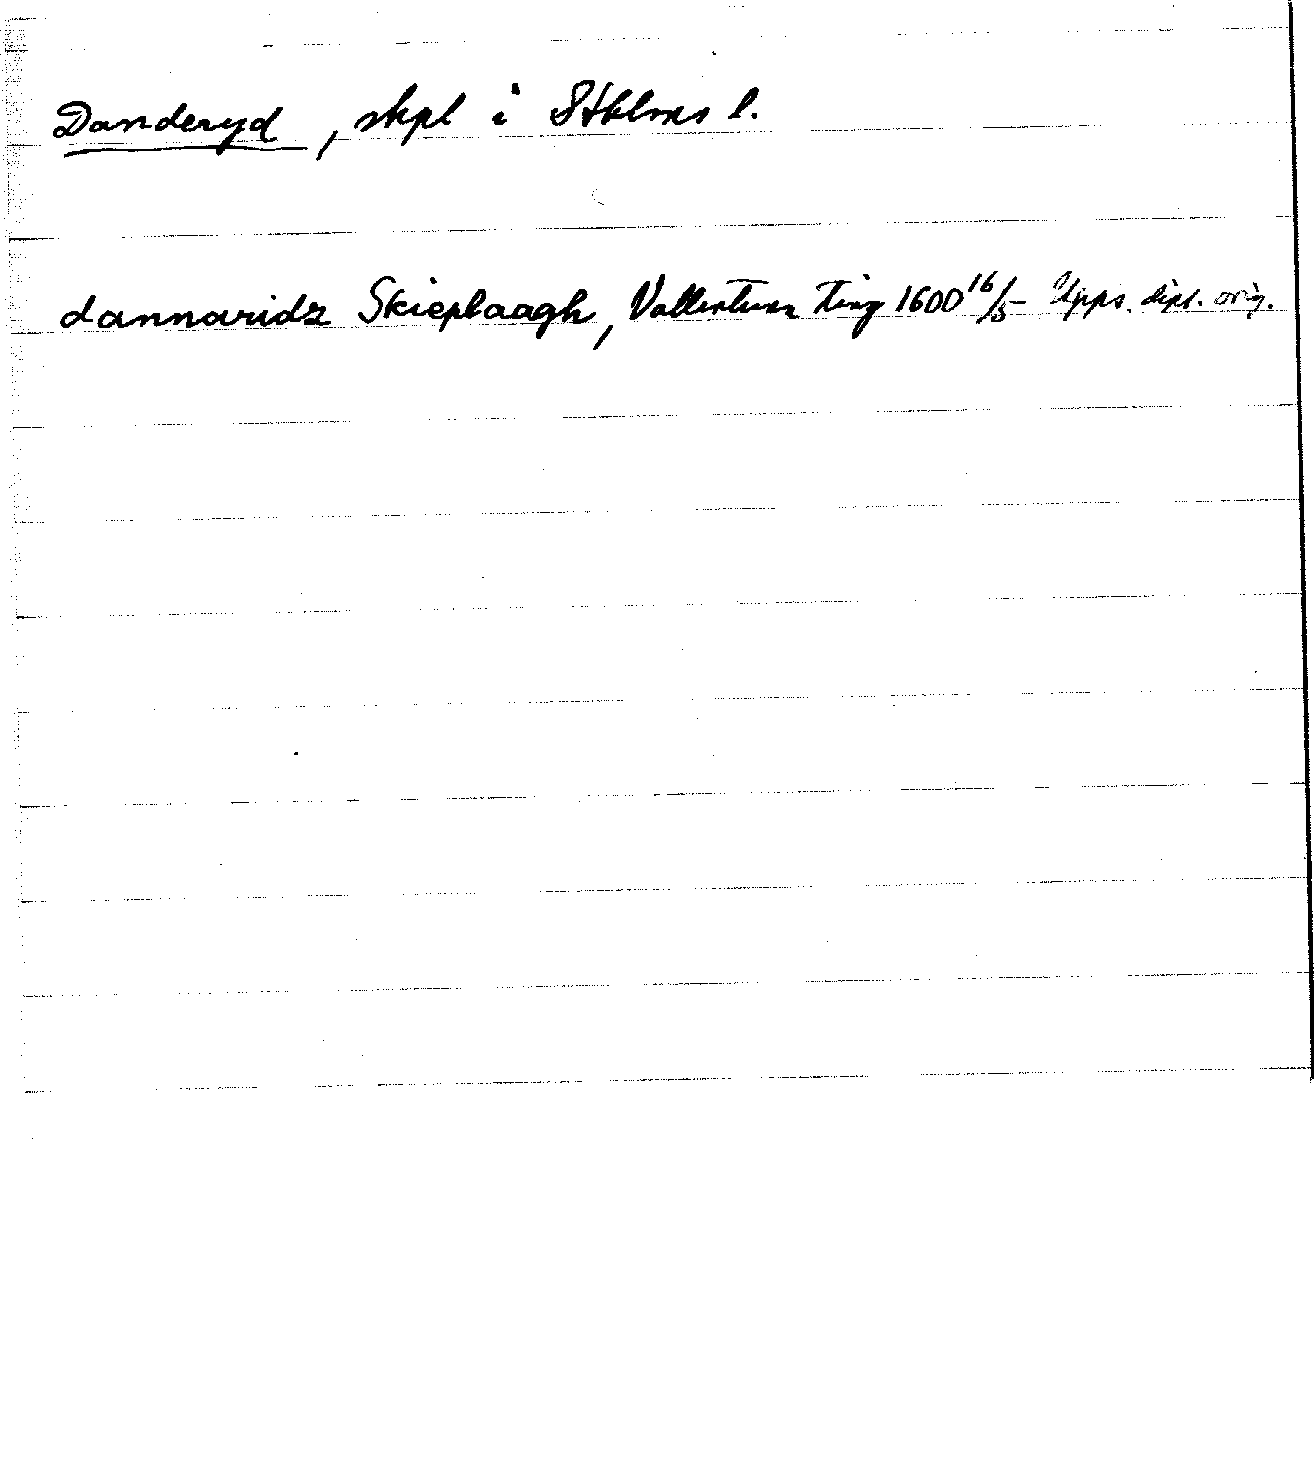 Danderyd, skpl i Sthlms l.
dannaridz Skieplaagh, Vallentuna ting 1600 16/5 Upps. dipl. orig.